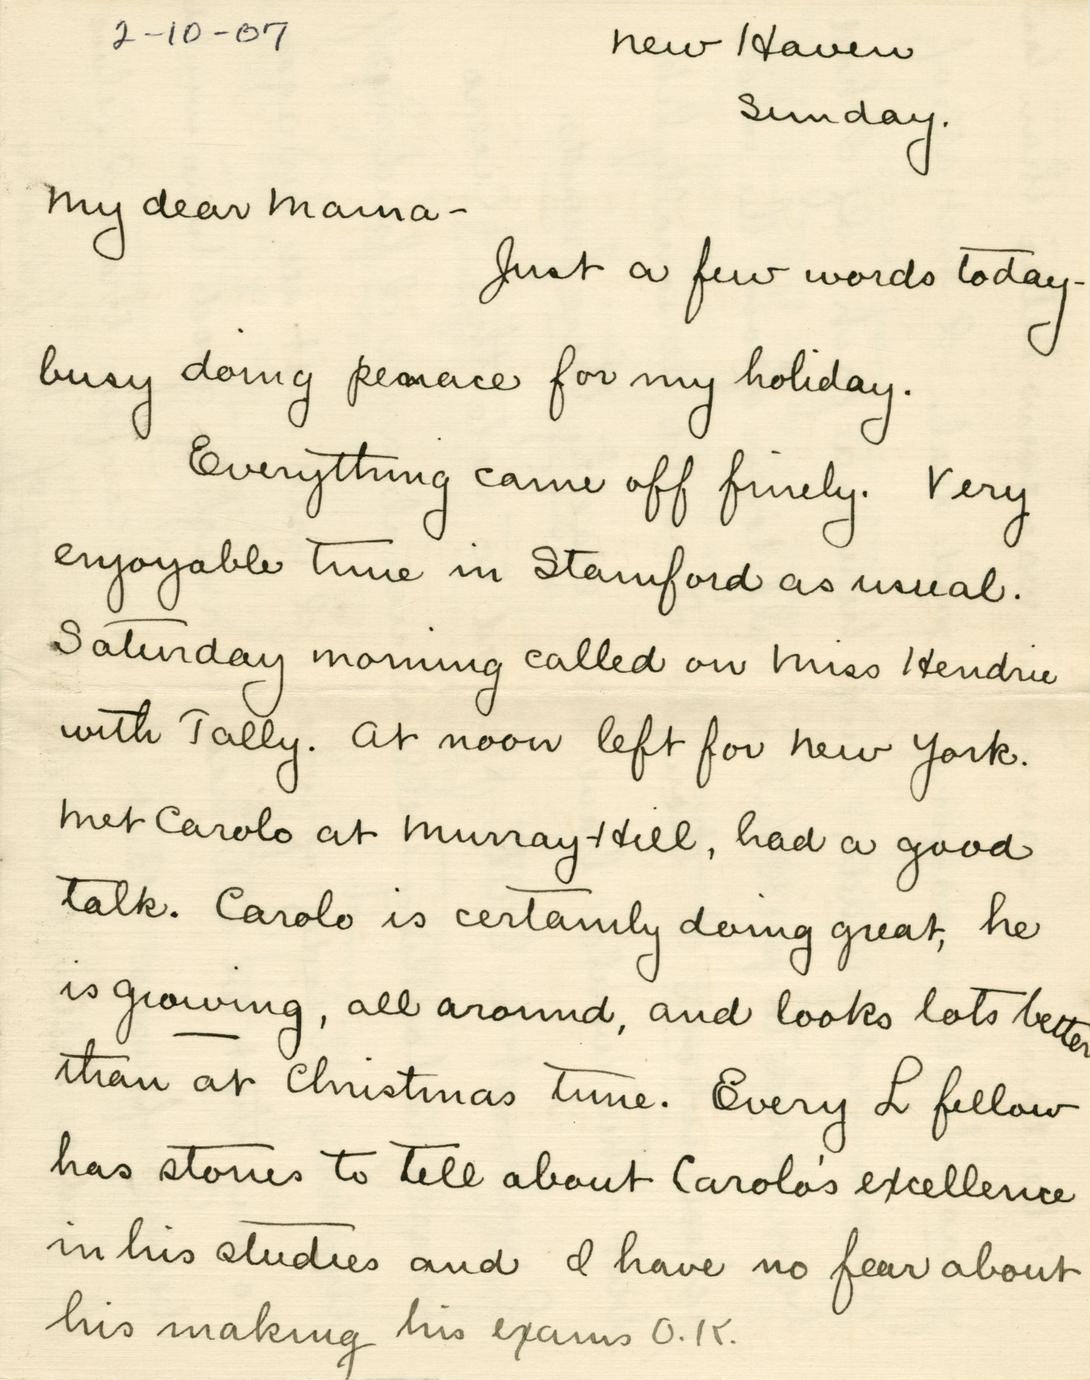 2-10-07
New Haven
Sunday.
My dear Mama-
Just a few words today-
busy doing penace for my holiday.
Everything came off finely. Very
enjoyable time in Stamford as usual.
Saturday morning called on Miss Hendrie
with Tally. At noon left for New York.
Met Carolo at Murray-Hill, had a good
talk. Carolo is certainly doing great, he
is growing, all around, and looks lots better
than at Christmas time. Every L fellow
has stories to tell about Carolo's excellence
in his studies and I have no fear about
his making his exams O.K.